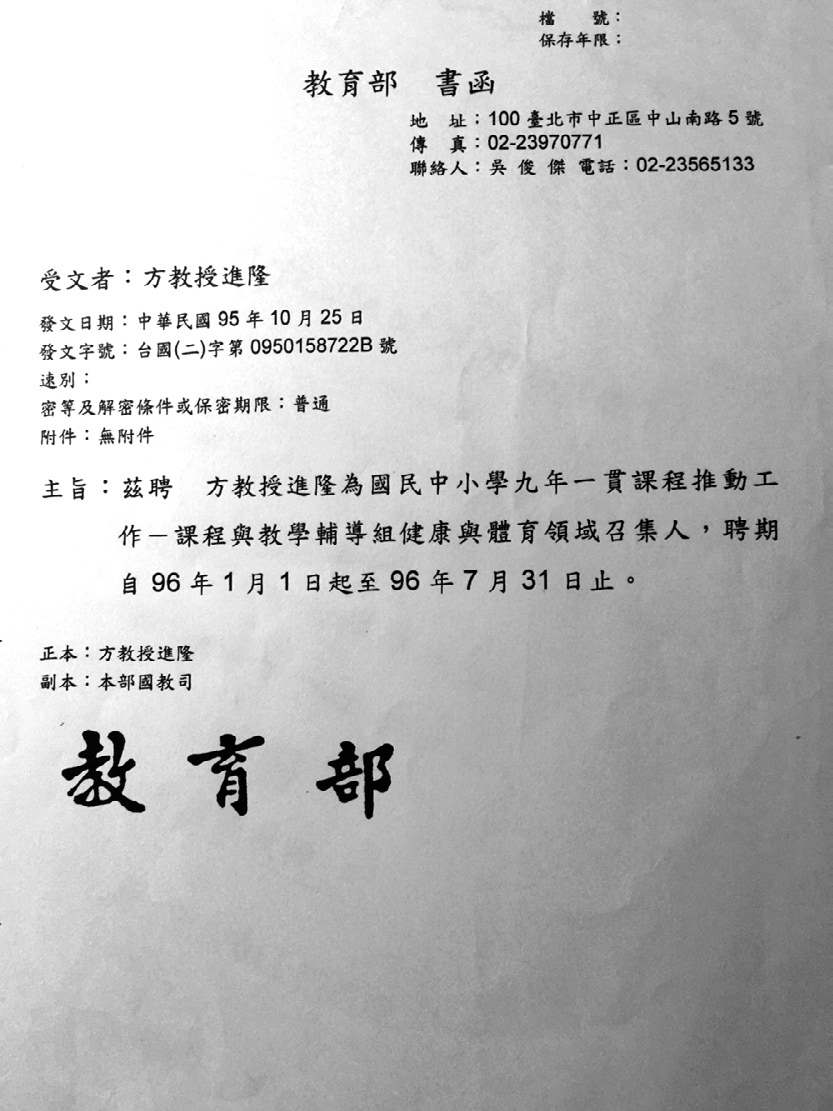 檔　　號：
保存年限：
教育部　書函
地　址：100 臺北市中正區中山南路 5 號
傳　真：02-23970771
聯絡人：吳 俊 傑 電話：02-23565133
受文者：方教授進隆
發文日期：中華民國 95 年 10 月 25 日
發文字號：台國(二)字第 0950158722B 號
速別：
密等及解密條件或保密期限：普通
附件：無附件
主旨：茲聘　方教授進隆為國民中小學九年一貫課程推動工
作－課程與教學輔導組健康與體育領域召集人，聘期
自 96 年 1 月 1 日起至 96 年 7 月 31 日止。
正本：方教授進隆
副本：本部國教司
教育部